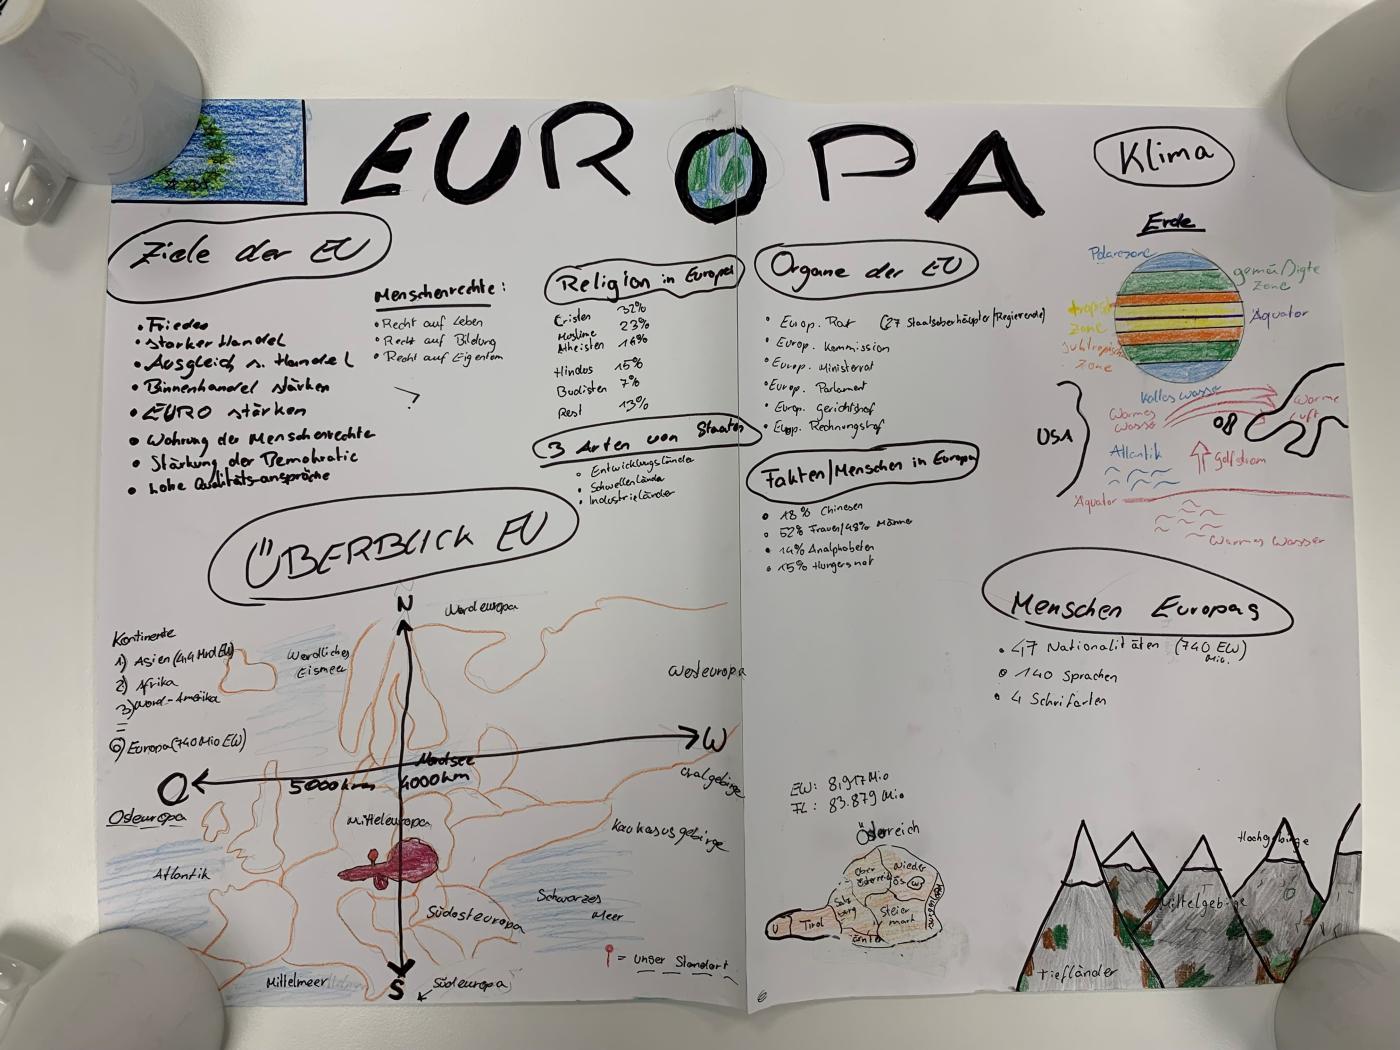 EUROPA
Klima
Ziele der EU
• Frieden
• starker Handel
• Ausgleich n. Handel
• Binnenhandel stärken
• EURO stärken
• Wahrung der Menschenrechte
• Stärkung der Demokratie
• hohe Qualitäts-ansprüche
Menschenrechte:
• Recht auf Leben
• Recht auf Bildung
• Recht auf Eigentum
Religion in Europa
Cristen 32%
Moslime 23%
Atheisten 16%
Hindos 15%
Budisten 7%
Rest 13%
3 Arten von Staaten
• Entwicklungsländer
• Schwellenländer
• Industrieländer
Organe der EU
• Europ. Rat (27 Staatsoberhäupter/Regierende)
• Europ. Kommission
• Europ. Ministerrat
• Europ. Parlament
• Europ. Gerichtshof
• Europ. Rechnungshof
Fakten/Menschen in Europa
• 18% Chinesen
• 52% Frauen/48% Männer
• 14% Analphabeten
• 15% Hungersnot
Erde
Polarezone
gemäßigte
Zone
tropische
Zone
Äquator
subtropische
Zone
kaltes wasser
Warmes
wasser
warme
Luft
USA
Atlantik
Golfstrom
Äquator
Warmes Wasser
Menschen Europas
• 47 Nationalitäten (740 EW)
Mio.
• 140 Sprachen
• 4 Schriftarten
ÜBERBLICK EU
Kontinente
1) Asien (4,4 Mrd EW)
2) Afrika
3) Nord-Amerika
=
6) Europa (740 Mio EW)
N
Nordeuropa
Nördliches
Eismeer
Westeuropa
O
W
5000km
Nordsee
4000km
Uralgebirge
Osteuropa
Mitteleuropa
Kaukasusgebirge
Atlantik
Schwarzes
Meer
Südosteuropa
Mittelmeer
S
Südeuropa
= unser Standort
EW: 8,917 Mio
FL: 83.879 Mio
Österreich
Ober
österreich
Nieder
Ös
W
Salz
burg
Steier
mark
V
Tirol
Hochgebirge
Mittelgebirge
Tiefländer